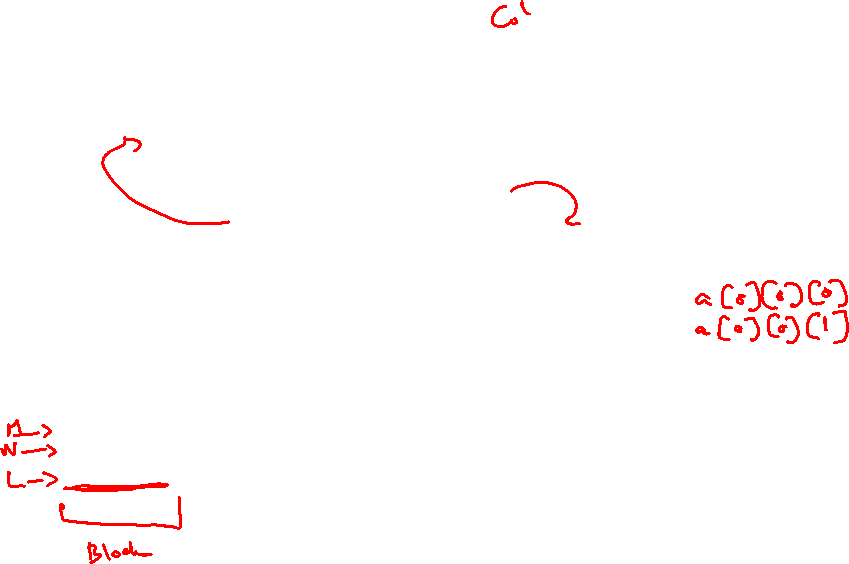 Col
a[0][0][0]
a[0][0][1]
M →
N →
L →
Block